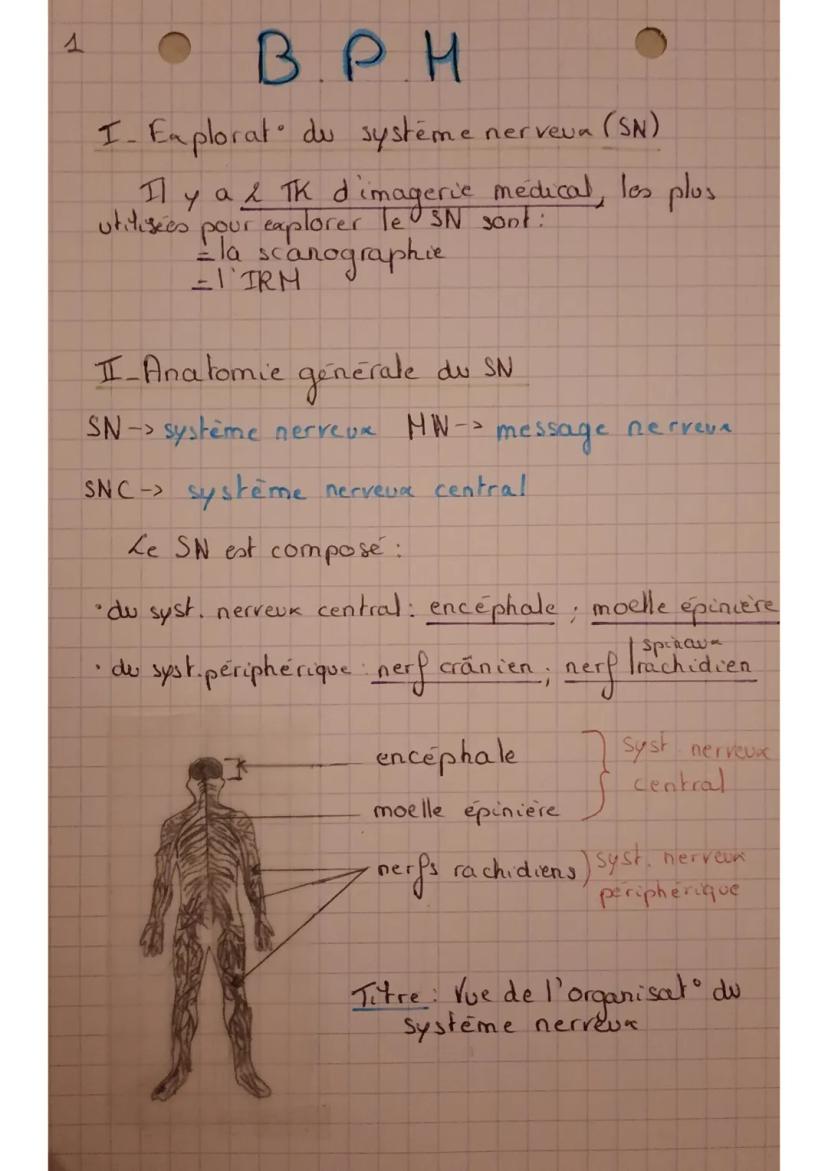 1
B.P.H
I- Explorat° du système nerveux (SN)
Il y a 2 TK d'imagerie médical, les plus
utilisées pour explorer le SN sont :
= la scanographie
= l'IRM
II- Anatomie générale du SN
SN -> système nerveux MN -> message nerveux
SNC -> système nerveux central
Le SN est composé :
• du syst. nerveux central : encéphale ; moelle épinière
spinaux
• du syst. périphérique : nerf crânien ; nerf rachidien
encéphale
syst nerveux
central
moelle épinière
nerfs rachidiens
syst. nerveux
périphérique
Titre : Vue de l'organisat° du
système nerveux